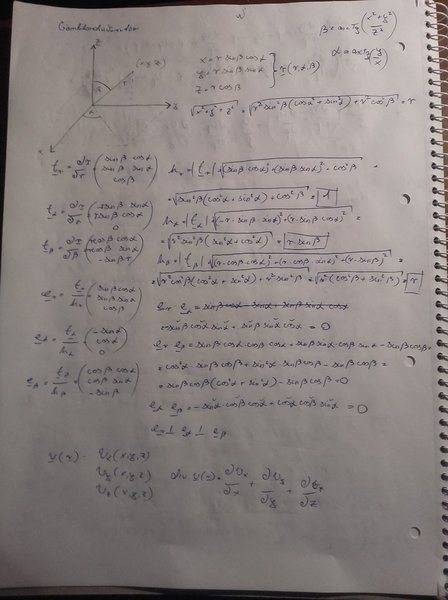 Gömbikoordináta rendszer
β = arc Tg (x²+y²/z²)
α = arc Tg (y/x)
z
(x, y, z)
β
r
y
α
x
x = r sinβ cosα
y = r sinβ sinα } = r (r, α, β)
z = r cosβ
√x²+y²+z² = √r² sin²β (cos²α + sin²α) + r² cos²β = r
t_r = ∂r/∂r = (sinβ cosα, sinβ sinα, cosβ)
h_r = |t_r| = √(sinβ cosα)² + (sinβ sinα)² + cos²β =
= √sin²β (cos²α + sin²α) + cos²β = 1
t_α = ∂r/∂α = (-r sinβ sinα, r sinβ cosα, 0)
h_α = |t_α| = √(-r · sinβ · sinα)² + (r · sinβ cosα)² =
= √r² sin²β (sin²α + cos²α) = r · sinβ
t_β = ∂r/∂β = (r cosβ cosα, r cosβ sinα, -sinβ r)
h_β = |t_β| = √(r · cosβ cosα)² + (r · cosβ · sinα)² + (r · sinβ)² =
= √r² cos²β (cos²α + sin²α) + r² sin²β = √r² (cos²β + sin²β) = r
e_r = t_r/h_r = (sinβ cosα, sinβ sinα, cosβ)
e_r e_α =
-cosα sinβ sinα + sinβ sinα cosα = 0
e_α = t_α/h_α = (-sinα, cosα, 0)
e_r e_β = sinβ cosα · cosβ cosα + sinβ sinα · cosβ sinα - sinβ cosβ =
= cos²α · sinβ cosβ + sin²α sinβ cosβ - sinβ cosβ =
e_β = t_β/h_β = (cosβ cosα, cosβ sinα, -sinβ)
= sinβ cosβ (cos²α + sin²α) - sinβ cosβ = 0
e_α e_β = -sinα · cosβ cosα + cosα cosβ sinα = 0
e_r ⊥ e_α ⊥ e_β
v(r) = v_x (x, y, z)
v_y (x, y, z)
v_z (x, y, z)
div v(r) = ∂v_x/∂x + ∂v_y/∂y + ∂v_z/∂z